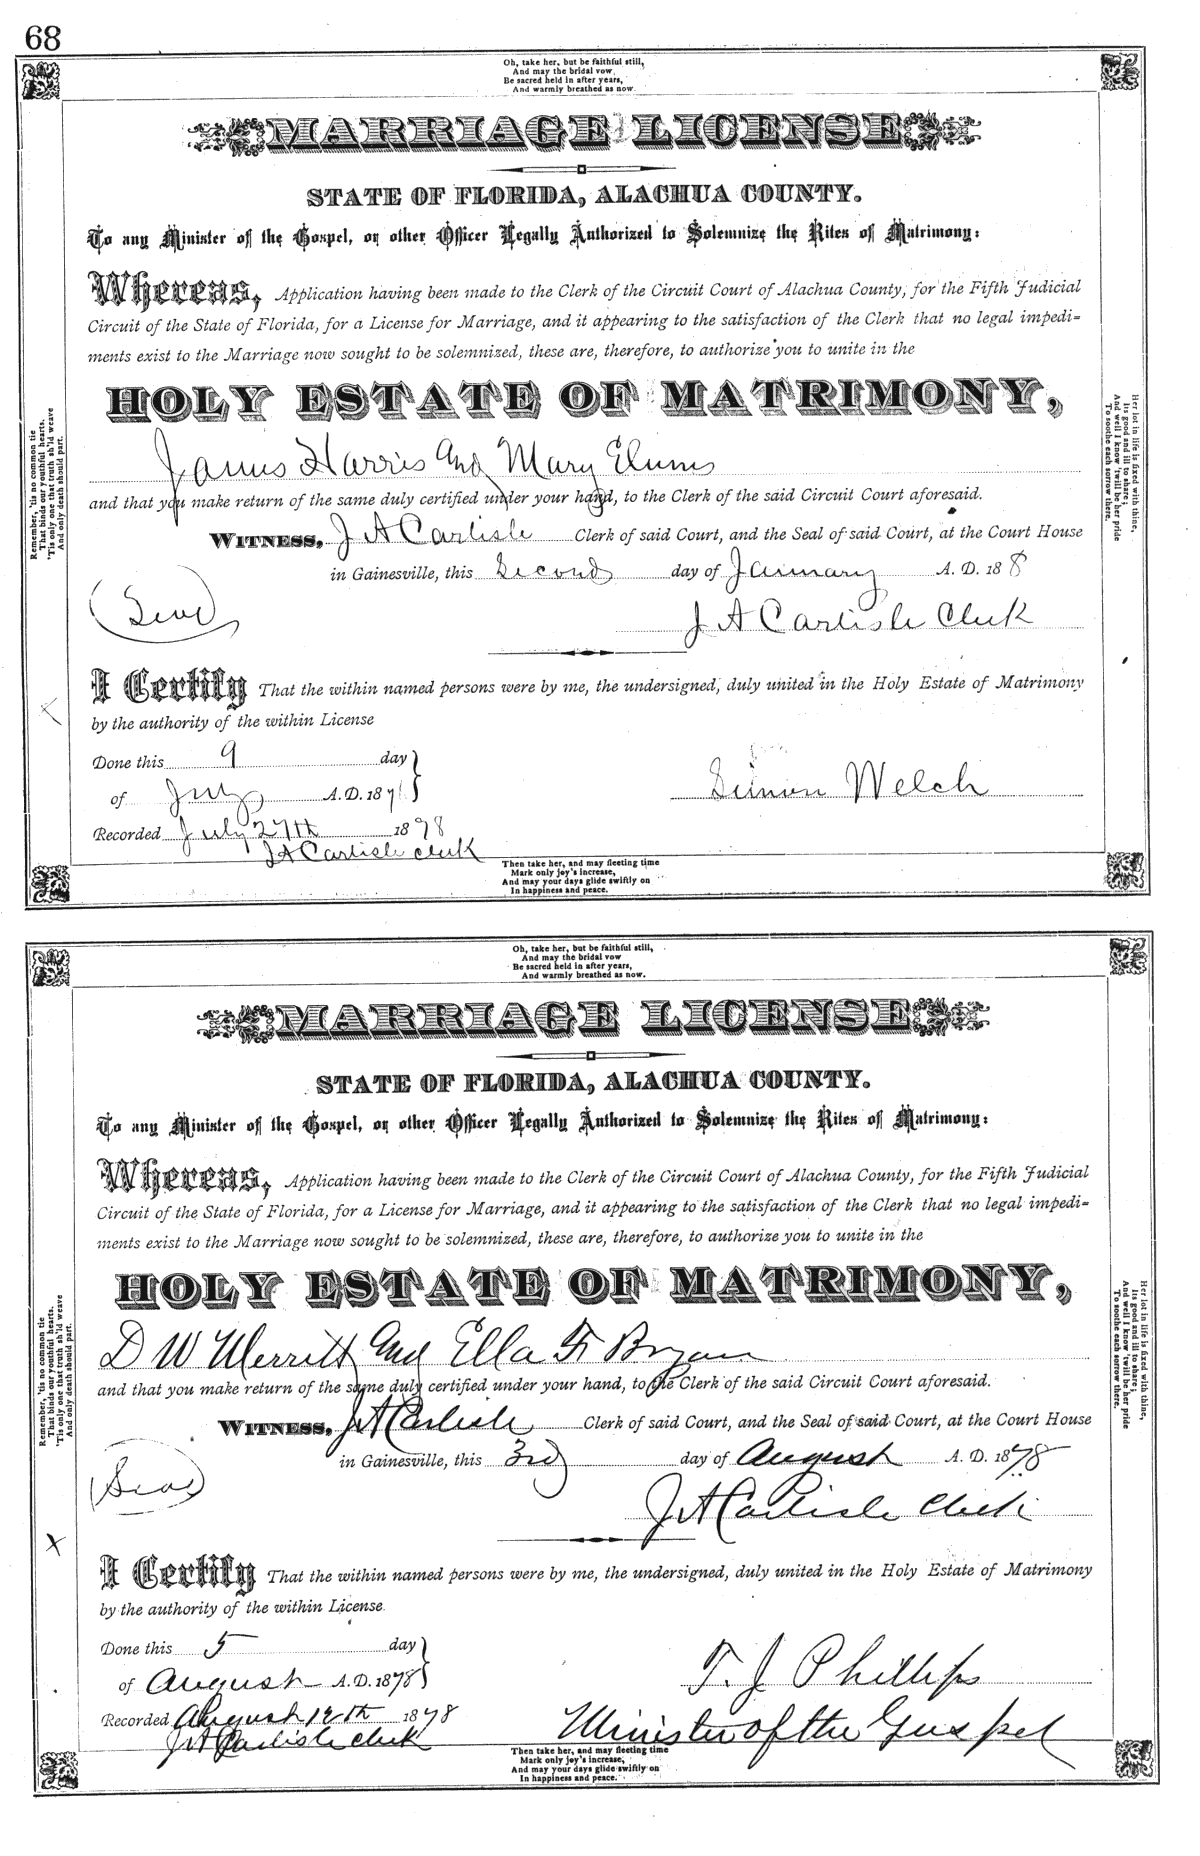 68
Oh, take her, but be faithful still,
And may the bridal vow
Be sacred held in after years,
And warmly breathed as now.
MARRIAGE LICENSE
STATE OF FLORIDA, ALACHUA COUNTY.
To any Minister of the Gospel, or other Officer Legally Authorized to Solemnize the Rites of Matrimony:
Whereas, Application having been made to the Clerk of the Circuit Court of Alachua County, for the Fifth Judicial
Circuit of the State of Florida, for a License for Marriage, and it appearing to the satisfaction of the Clerk that no legal impedi-
ments exist to the Marriage now sought to be solemnized, these are, therefore, to authorize you to unite in the
HOLY ESTATE OF MATRIMONY,
James Harris and Mary
and that you make return of the same duly certified under your hand, to the Clerk of the said Circuit Court aforesaid.
WITNESS, J A Carlisle Clerk of said Court, and the Seal of said Court, at the Court House
in Gainesville, this Second day of January A. D. 18 8
(Seal)
J A Carlisle Clerk
I Certify That the within named persons were by me, the undersigned, duly united in the Holy Estate of Matrimony
by the authority of the within License
Done this 9 day
of July A. D. 187
Simon Welch
Recorded July 27th 1878
J A Carlisle clerk
Then take her, and may fleeting time
Mark only joy's increase,
And may your days glide swiftly on
In happiness and peace.
Remember, 'tis no common tie
That binds our youthful hearts,
'Tis only one that truth sh'ld weave
And only death should part.
Her lot in life is fixed with thine,
Its good and ill to share;
And well I know 'twill be her pride
To soothe each sorrow there.
Oh, take her, but be faithful still,
And may the bridal vow
Be sacred held in after years,
And warmly breathed as now.
MARRIAGE LICENSE
STATE OF FLORIDA, ALACHUA COUNTY.
To any Minister of the Gospel, or other Officer Legally Authorized to Solemnize the Rites of Matrimony:
Whereas, Application having been made to the Clerk of the Circuit Court of Alachua County, for the Fifth Judicial
Circuit of the State of Florida, for a License for Marriage, and it appearing to the satisfaction of the Clerk that no legal impedi-
ments exist to the Marriage now sought to be solemnized, these are, therefore, to authorize you to unite in the
HOLY ESTATE OF MATRIMONY,
D W Merritt and Ella F Bryan
and that you make return of the same duly certified under your hand, to the Clerk of the said Circuit Court aforesaid.
WITNESS, J A Carlisle Clerk of said Court, and the Seal of said Court, at the Court House
in Gainesville, this 3rd day of August A. D. 1878
(Seal)
J A Carlisle Clerk
X
I Certify That the within named persons were by me, the undersigned, duly united in the Holy Estate of Matrimony
by the authority of the within License.
Done this 5 day
of August A. D. 1878
T. J Phillips
Recorded August 12th 1878
Minister of the Guspel
J A Carlisle clerk
Then take her, and may fleeting time
Mark only joy's increase,
And may your days glide swiftly on
In happiness and peace.
Remember, 'tis no common tie
That binds our youthful hearts.
'Tis only one that truth sh'ld weave
And only death should part.
Her lot in life is fixed with thine,
Its good and ill to share;
And well I know 'twill be her pride
To soothe each sorrow there.